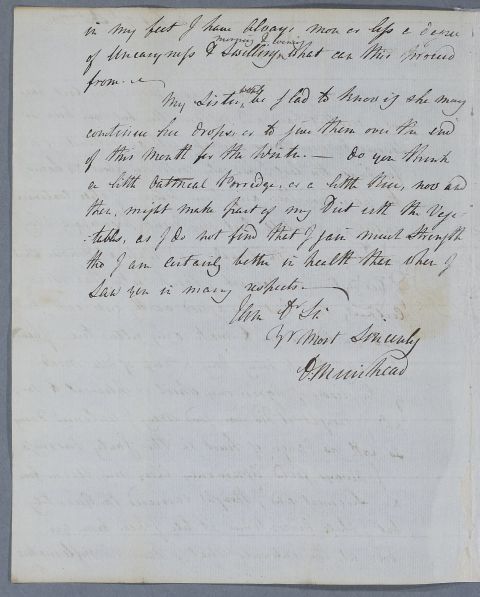 in my feet I have always more or less a degree
of Uneasyness & Swelling morning & evening, what can this proceed
from —
My Sister would be glad to know if she may
continue her drops, or to give them over the end
of this Month for the Winter. — Do you think
a little Oatmeal Porridge, or a little Rice, now and
then, might make part of my Diet with the Vege-
-tables, as I do not find that I gain much strength
tho I am certainly better in health than when I
Saw you in many respects —
I am Dr Sir
Yr Most Sincerely
D. Muirhead